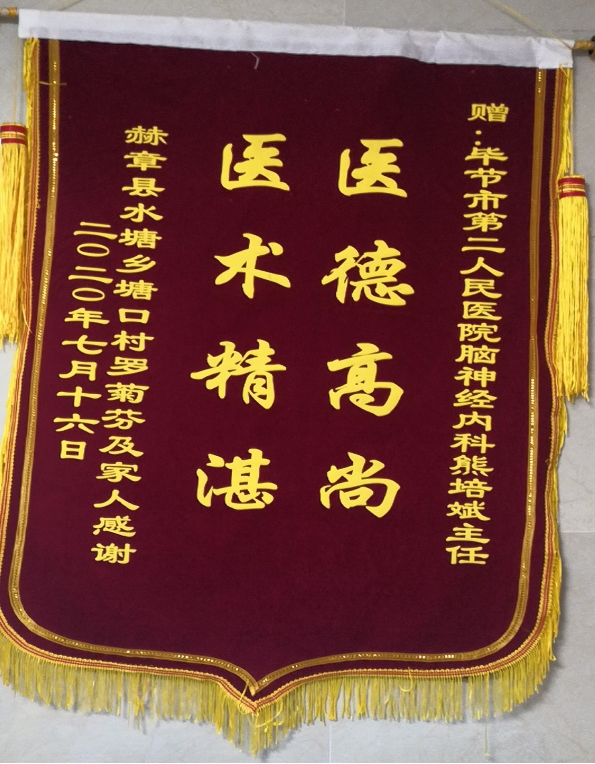 赠:毕节市第二人民医院脑神经内科熊培斌主任
医德高尚
医术精湛
赫章县水塘乡塘口村罗菊芬及家人感谢
二〇二〇年七月十六日